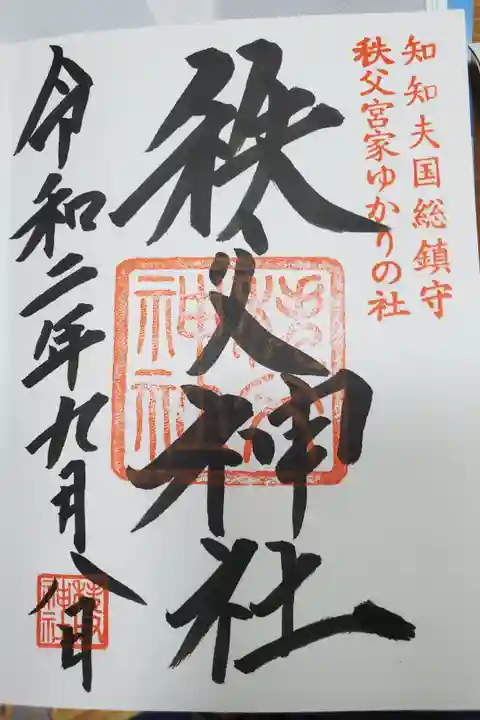 知知夫国総鎮守
秩父宮家ゆかりの社
秩父神社
令和二年九月八日